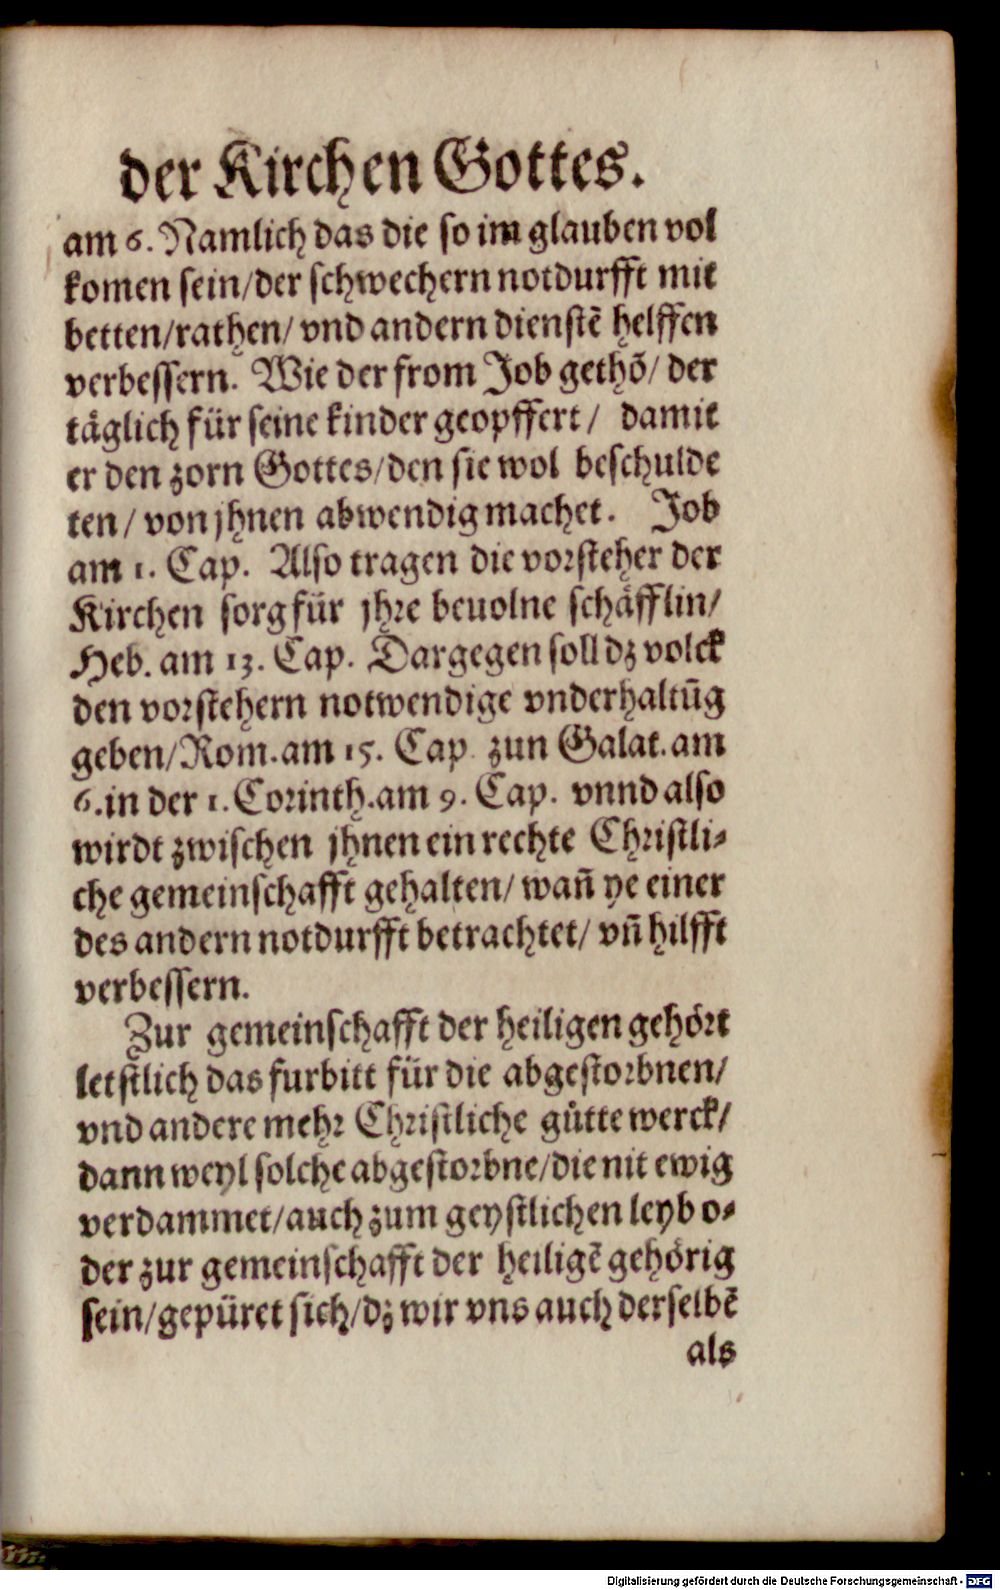 der Kirchen Gottes.
am 6. Namlich das die so im glauben vol
komen sein/der schwechern notdurfft mit
betten/rathen/ vnd andern dienstẽ helffen
verbessern. Wie der from Job gethõ/ der
täglich für seine kinder geopffert/ damit
er den zorn Gottes/den sie wol beschulde
ten/ von jhnen abwendig machet. Job
am 1. Cap. Also tragen die vorsteher der
Kirchen sorg für jhre beuolne schäfflin/
Heb. am 13. Cap. Dargegen soll dz volck
den vorstehern notwendige vnderhaltũg
geben/Rom. am 15. Cap. zun Galat. am
6. in der 1. Corinth. am 9. Cap. vnnd also
wirdt zwischen jhnen ein rechte Christli-
che gemeinschafft gehalten/ wañ ye einer
des andern notdurfft betrachtet/ vñ hilfft
verbessern.
Zur gemeinschafft der heiligen gehört
letstlich das furbitt für die abgestorbnen/
vnd andere mehr Christliche gůtte werck/
dann weyl solche abgestorbne/die nit ewig
verdammet/auch zum geystlichen leyb o-
der zur gemeinschafft der heiligẽ gehörig
sein/gepüret sich/dz wir vns auch derselbẽ
als
Digitalisierung gefördert durch die Deutsche Forschungsgemeinschaft - DFG